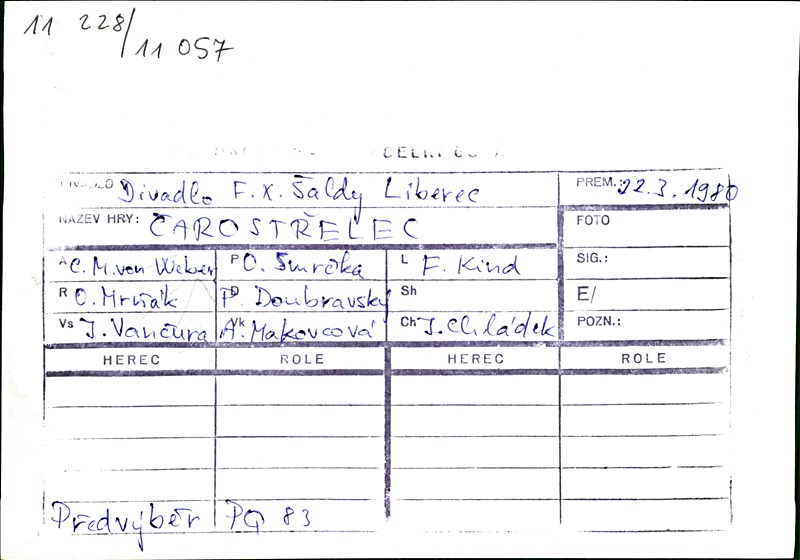 11 228/
11 057
CELKY
DIVADLO Divadlo F. X. Šaldy Liberec PREM.: 22.3.1980
NÁZEV HRY: ČAROSTŘELEC FOTO
A C. M. von Weber P O. Smrčka L F. Kind SIG.:
R O. Mrňák D P. Doubravský Sh E/
Vs J. Vančura Vk A. Makovcová Ch J. Chládek POZN.:
HEREC ROLE HEREC ROLE
Předvýběr PQ 83